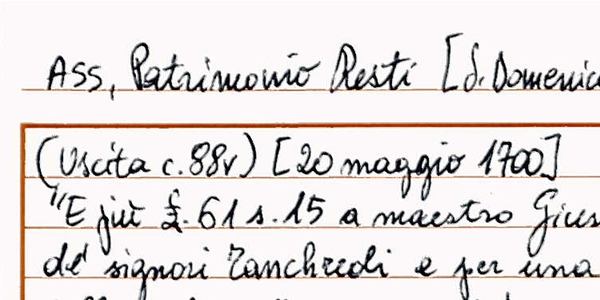 ASS, Patrimonio Resti [S. Domenico
(Uscita c. 88v) [20 maggio 1700]
"E più £. 61 s. 15 a maestro
de' signori e per una